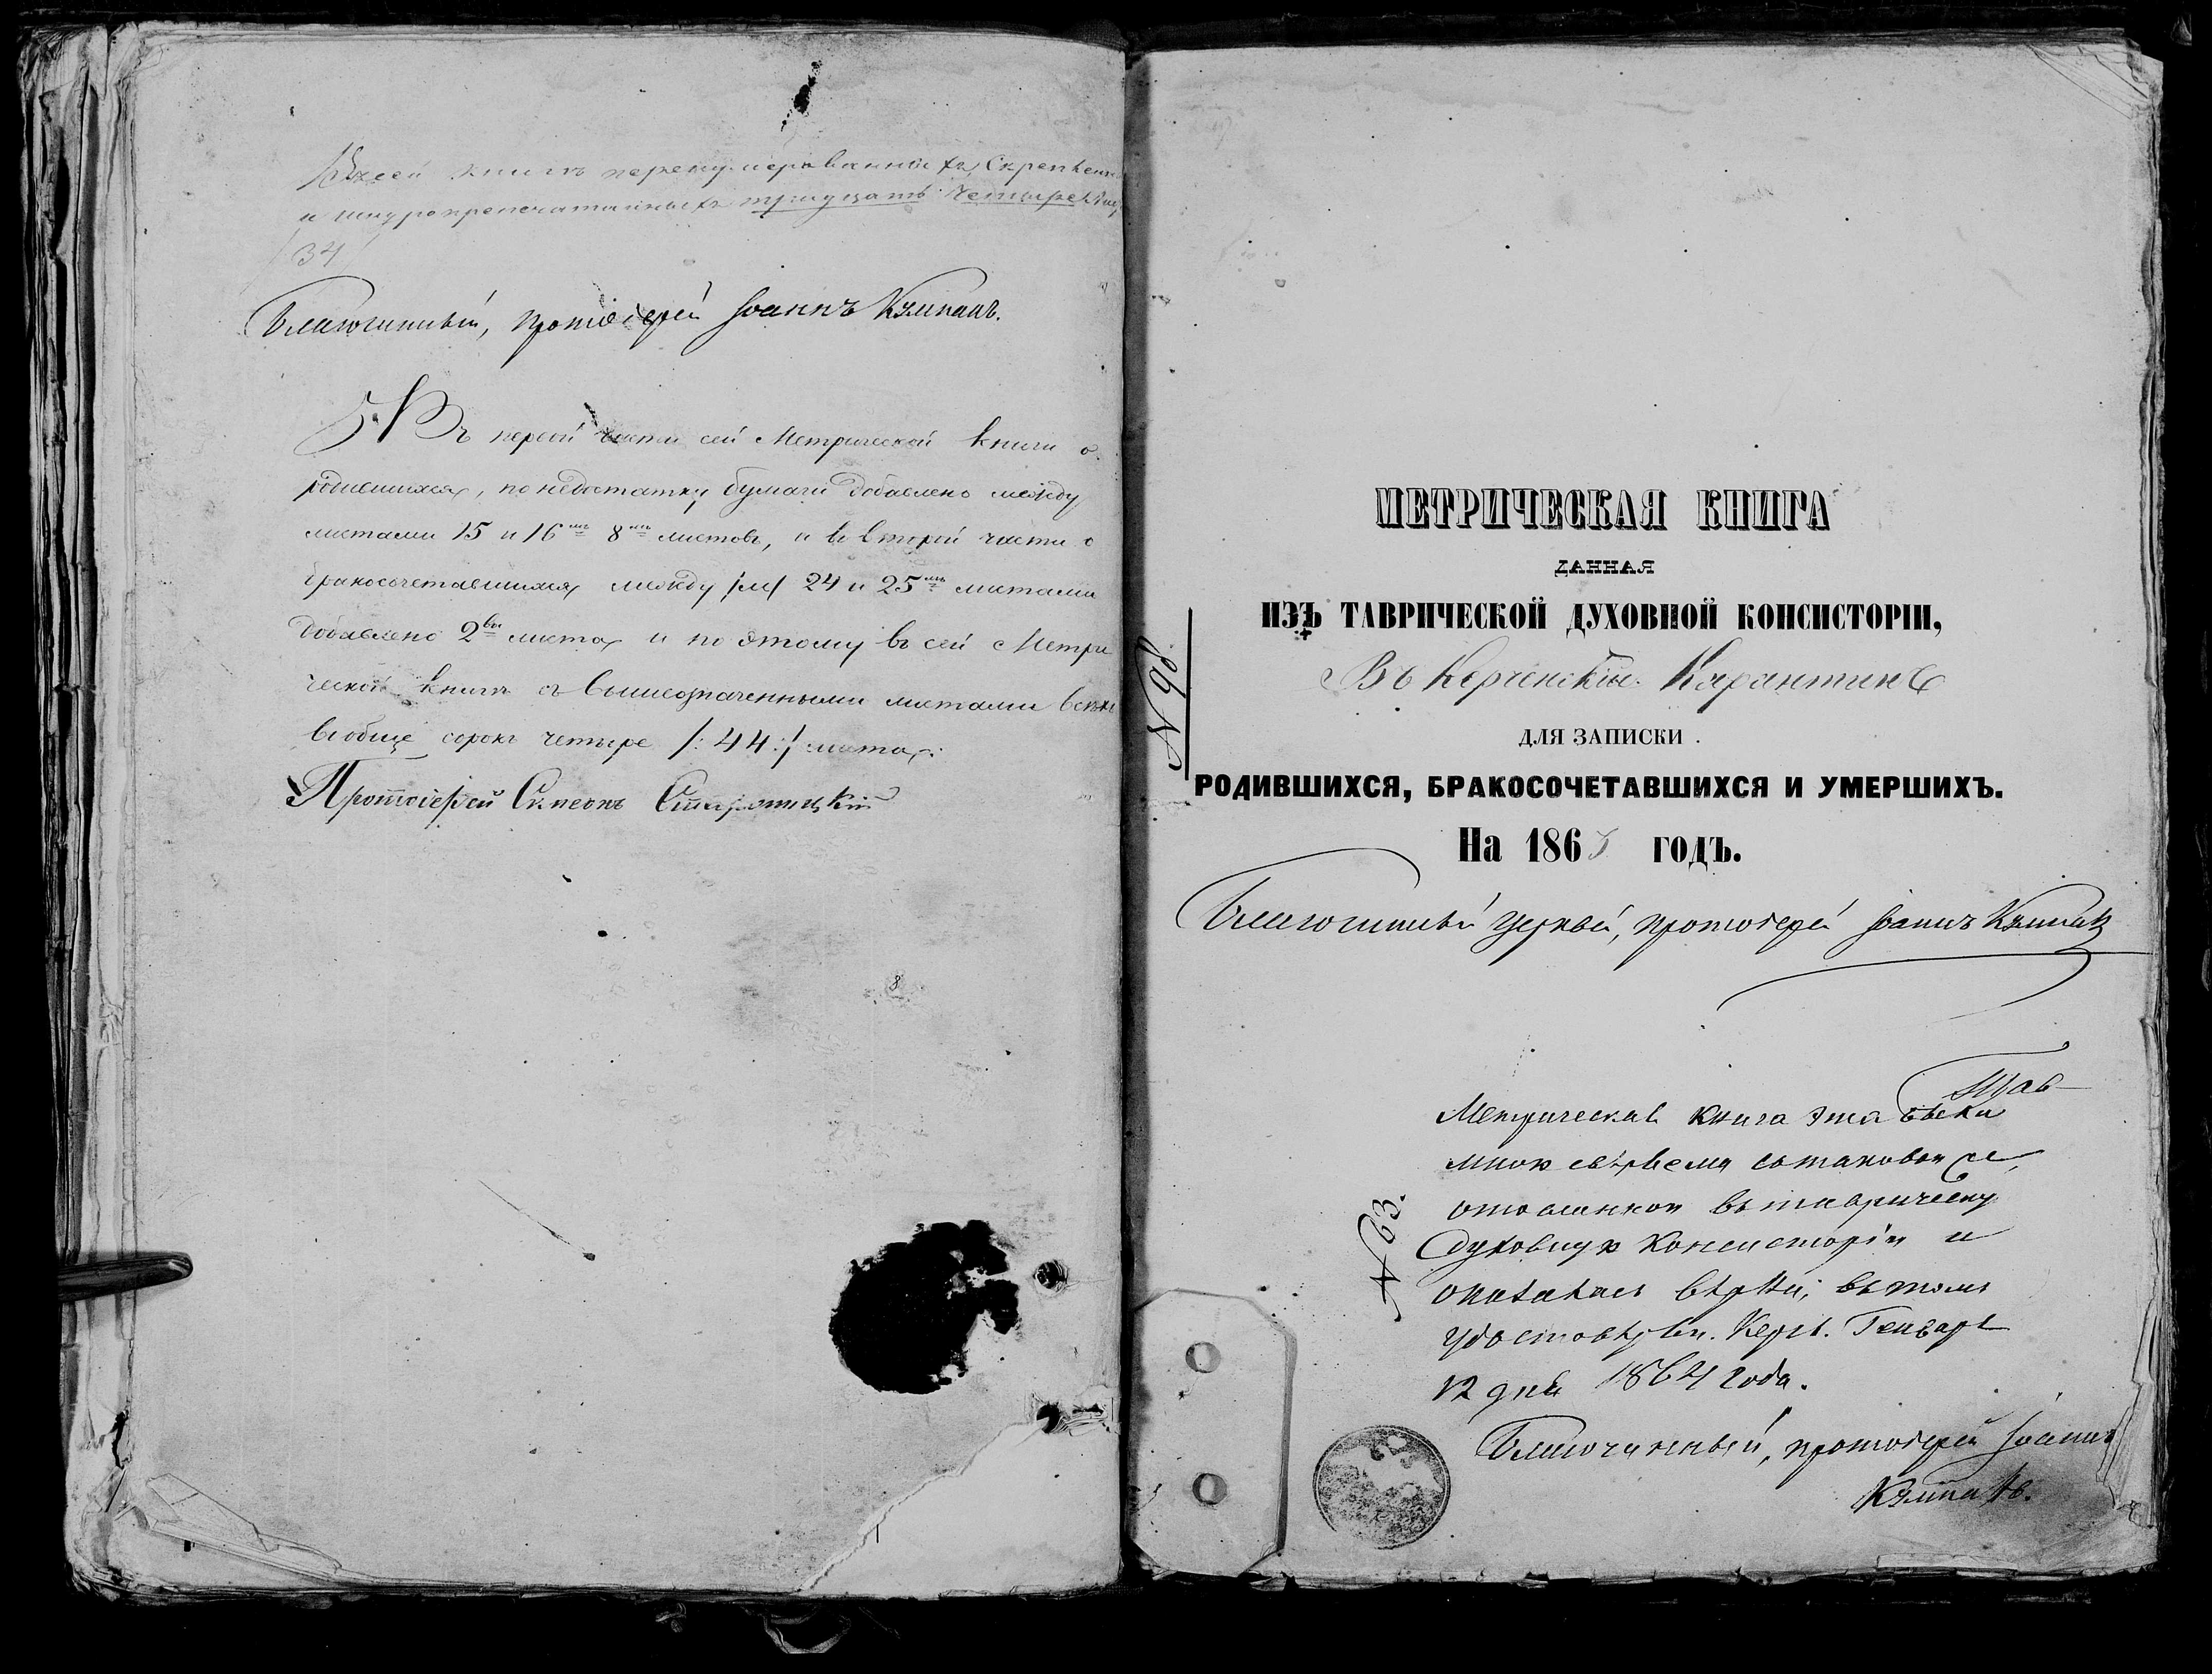 Въ сей книгѣ перенумерованныхъ, Скрѣпленн
и шнуропропечатанныхъ тридцать Четыре
/34/
Благочинный, протоіерей Іоаннъ Кумпанъ.
Въ первой части сей Метрической книги о
родившихся, по недостатку бумаги добавлено между
листами 15 и 16мъ 8мь листовъ, и во второй части о
бракосочетавшихся между /м/ 24 и 25мъ листами
добавлено 2ва листа и по этому въ сей Метри
ческой книгѣ съ вышеозначенными листами всѣхъ
вообще сорокъ четыре /:44:/ листа.
Протоіерей Симеонъ
N 98.
МЕТРИЧЕСКАЯ КНИГА
ДАННАЯ
ИЗЪ ТАВРИЧЕСКОЙ ДУХОВНОЙ КОНСИСТОРІИ,
Въ Керченскій Карантинъ
ДЛЯ ЗАПИСКИ
РОДИВШИХСЯ, БРАКОСОЧЕТАВШИХСЯ И УМЕРШИХЪ.
На 1863 ГОДЪ.
Благочинный церквей, протоіерей Іоаннъ Кумпанъ
N 63.
Метрическая книга эта
мною свѣряема съ таковою же,
въ Таврическую
Духовную Консисторію и
оказалась вѣрна; въ томъ
удостовѣряю. Керчь. Генваря
12 дня 1864 года.
Благочинный, протоіерей Іоаннъ
Кумпанъ.